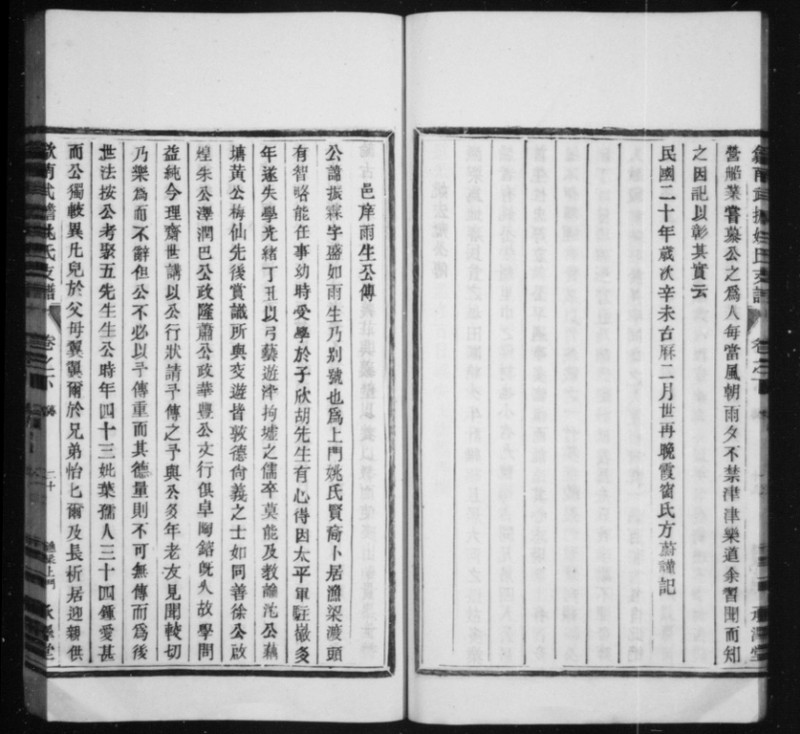 營船業嘗慕公之為人每當風朝雨夕不禁津津樂道余習聞而知
之因記以彰其實云
民國二十年歲次辛未古厤二月世再晚霞崗氏方蔚謹記
邑庠雨生公傳
公諱振霖字盛如雨生乃别號也為上門姚氏賢裔卜居漁梁渡頭
有智略能任事幼時受學於子欣胡先生有心得因太平軍駐徽多
年遂失學光緒丁丑以弓藝遊泮拘墟之儒卒莫能及敦誰沱公藕
塘黃公梅仙先後賞識所與交遊皆敦德尚義之士如同善徐公啟
煌朱公澤潤巴公政隆蕭公政華豐公文行俱卓陶鎔旣久故學問
益純今理齋世講以公行狀請予傳之予與公多年老友見聞較切
乃樂為而不辭但公不必以予傳重而其德量則不可無傳而為後
世法按公考聚五先生生公時年四十三妣葉孺人三十四鍾愛甚
而公獨較異凡兒於父母翼翼爾於兄弟怡匕爾及長析居迎親供
歙南武擔姚氏支譜
卷之下
二十
漁梁上門
承澤堂